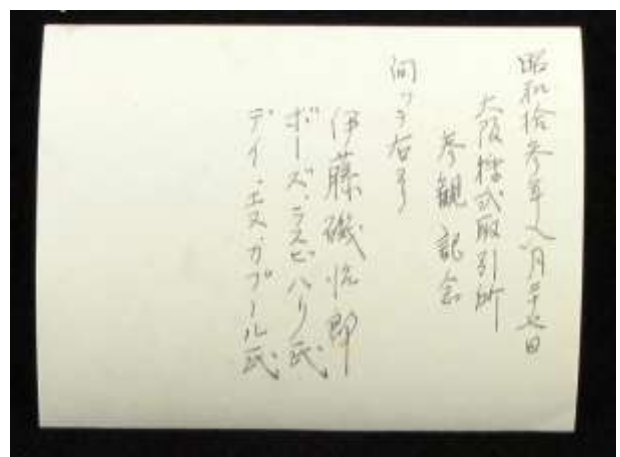 昭和拾参年八月二十七日
大阪株式取引所
参観記念
向ッテ右ヨリ
伊藤
ボーズ、ラスビハリ氏
デイ、エス、カプール氏